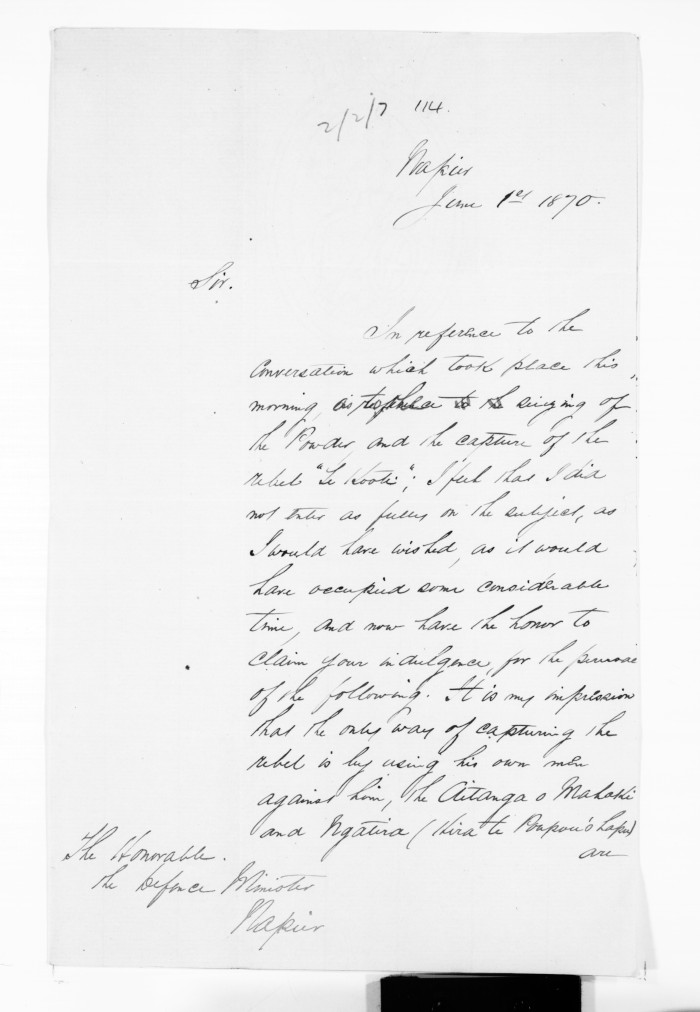 2/2/7 114.
Napier
June 1st 1870.
Sir.
In reference to the
Conversation which took place this
morning, as to the seizing of
the Powder, and the capture of the
rebel "Te Kooti"; I feel that I did
not enter as fully on the subject, as
I would have wished, as it would
have occupied some considerable
time, and now have the honor to
claim your indulgence, for the perusal
of the following. It is my impression
that the only way of capturing the
rebel is by using his own men
against him, the Aitanga o Mahaki
and Ngatira (Hira te
are
The Honorable.
the Defence Minister
Napier